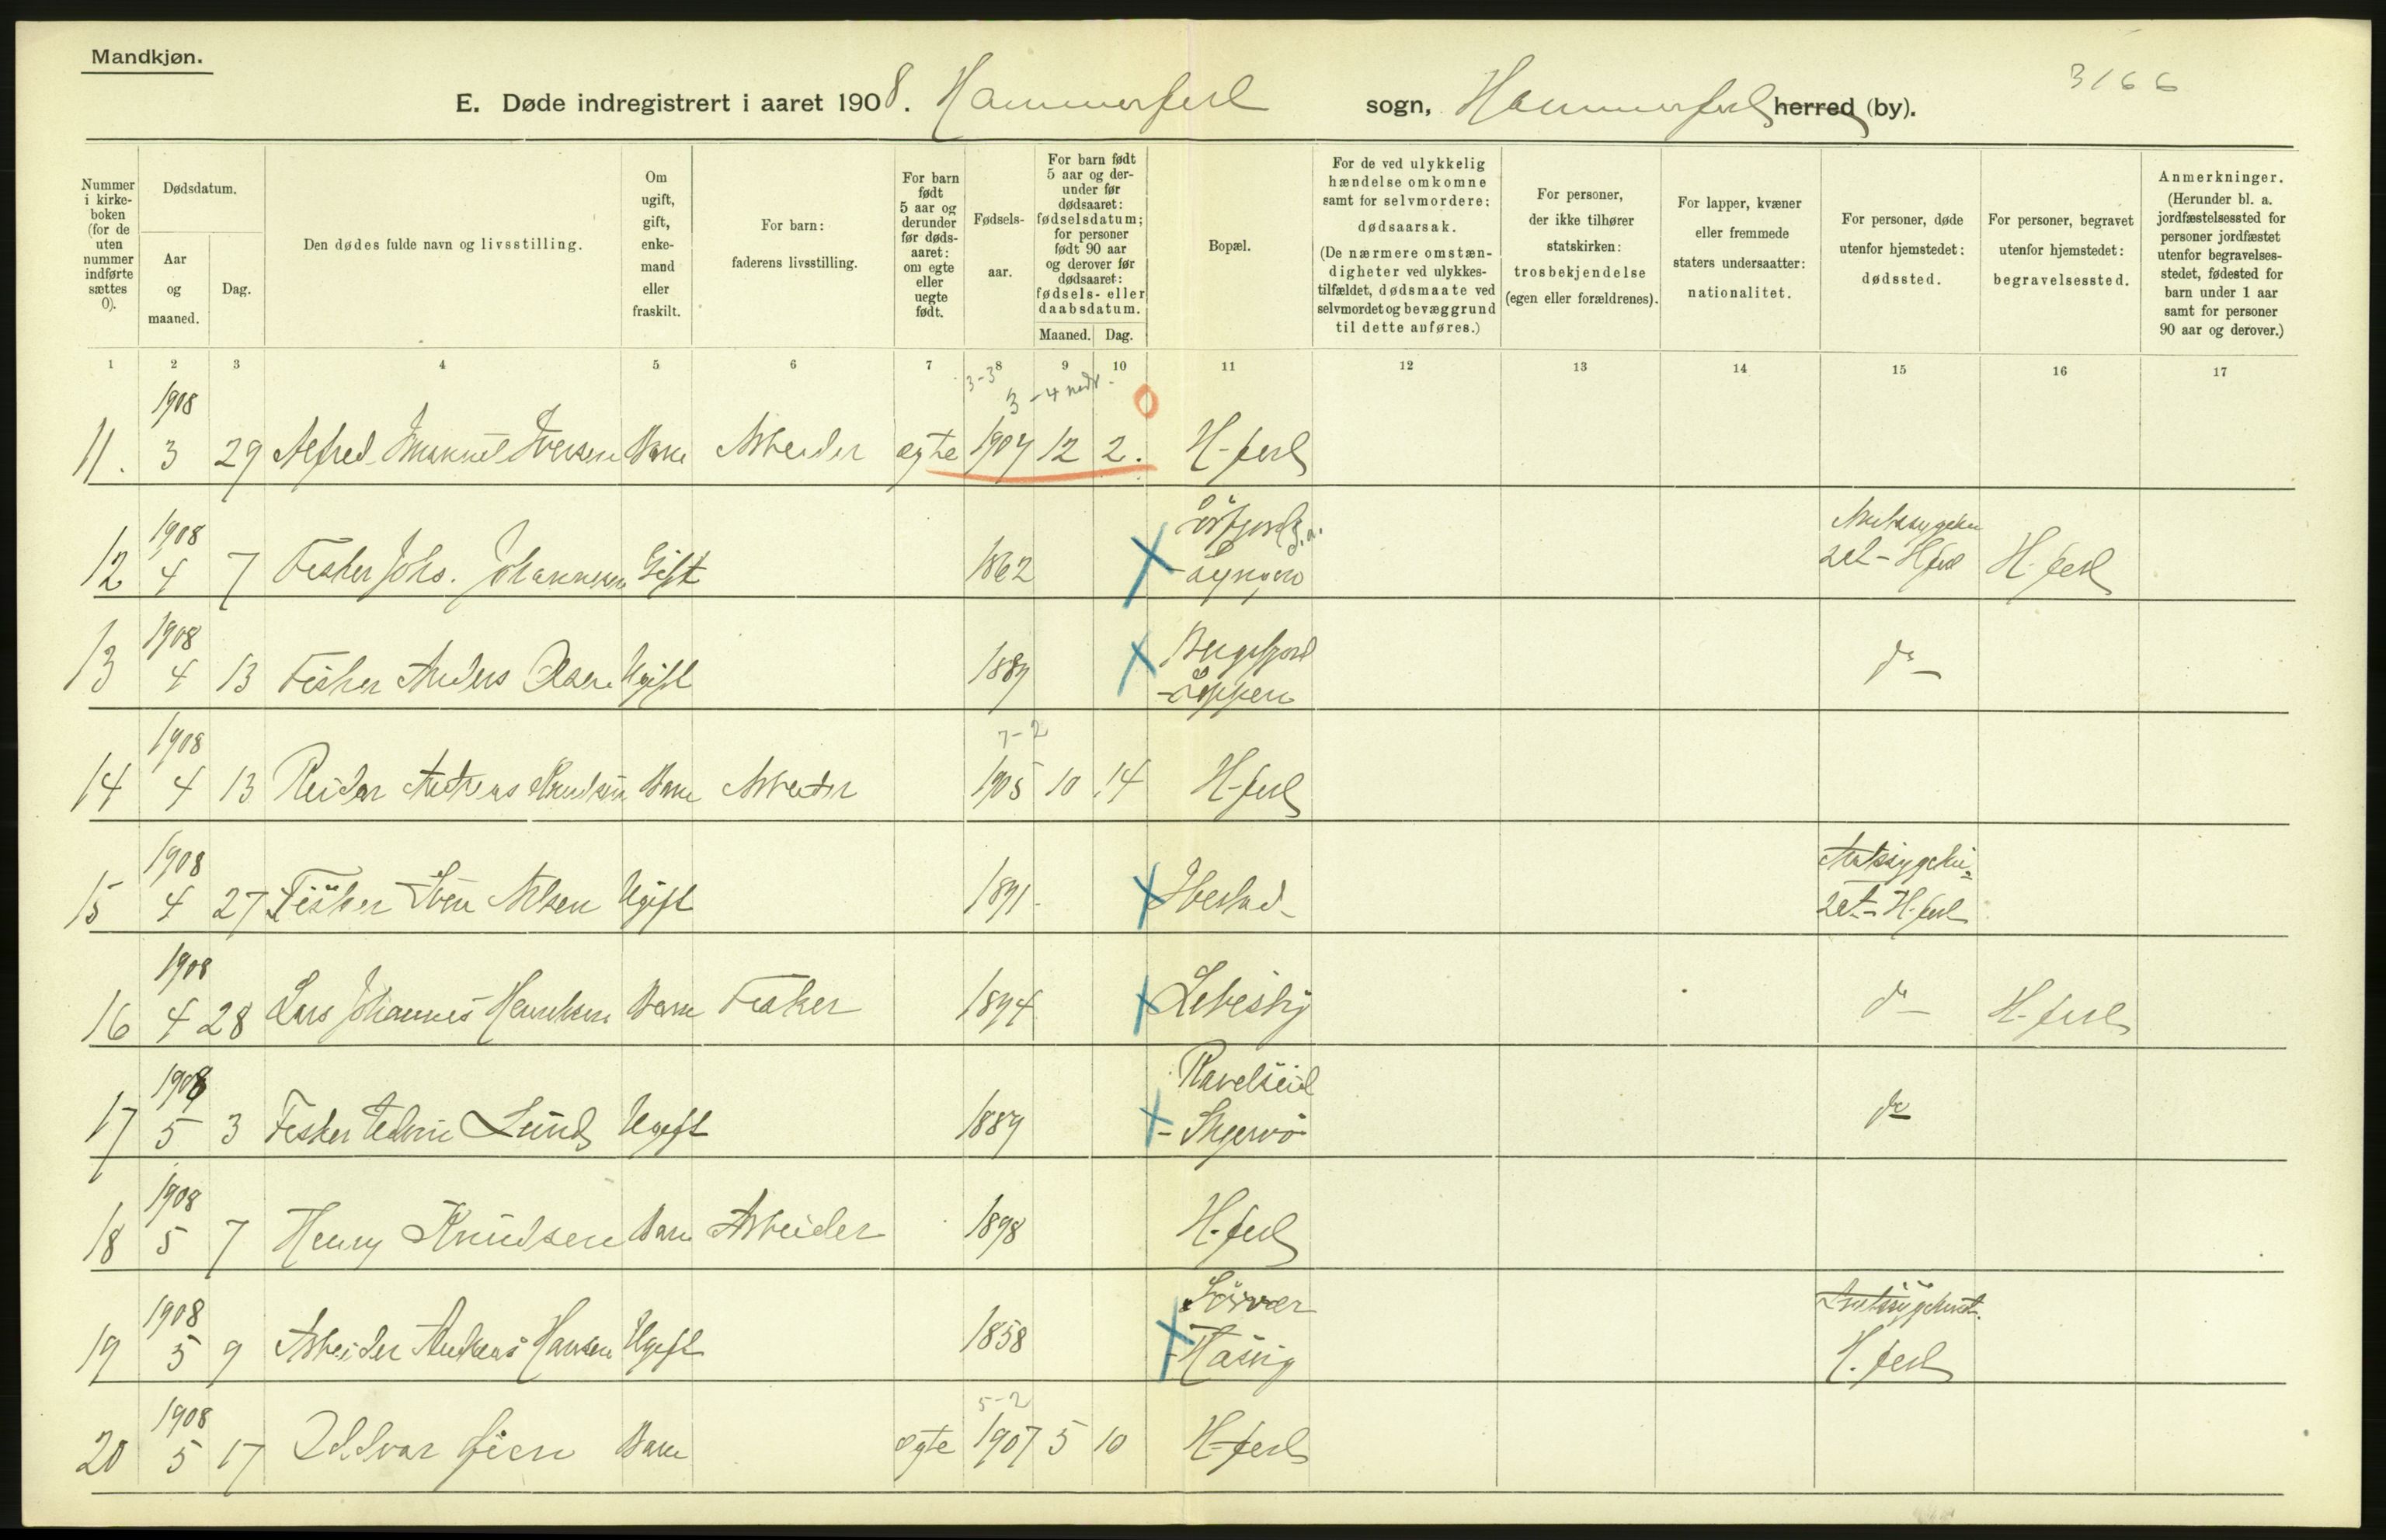 Mandkjøn.
3166
E. Døde indregistrert i aaret 1908. Hammerfest sogn, Hammerfest herred (by).
Nummer i kirke-boken (for de uten nummer indførte sættes 0).
Dødsdatum.
Aar og maaned.
Dag.
Den dødes fulde navn og livsstilling.
Om ugift, gift, enke-mand eller fraskilt.
For barn: faderens livsstilling.
For barn født 5 aar og derunder før døds-aaret: om egte eller uegte født.
Fødsels-aar.
For barn født 5 aar og der-under før dødsaaret: fødselsdatum; for personer født 90 aar og derover før dødsaaret: fødsels- eller daabsdatum.
Maaned. Dag.
Bopæl.
For de ved ulykkelig hændelse omkomne samt for selvmordere: dødsaarsak. (De nærmere omstæn-digheter ved ulykkes-tilfældet, dødsmaate ved selvmordet og bevæggrund til dette anføres.)
For personer, der ikke tilhører statskirken: trosbekjendelse (egen eller forældrenes).
For lapper, kvæner eller fremmede staters undersaatter: nationalitet.
For personer, døde utenfor hjemstedet: dødssted.
For personer, begravet utenfor hjemstedet: begravelsessted.
Anmerkninger. (Herunder bl. a. jordfæstelsessted for personer jordfæstet utenfor begravelses-stedet, fødested for barn under 1 aar samt for personer 90 aar og derover.)
1 2 3 4 5 6 7 8 9 10 11 12 13 14 15 16 17
3-3
1908 3-4 0
11. 3 29 Alfred Imanuel Iversen Barn Arbeider egte 1907 12 2. H-fest
1908 Sörfjord Amtssygehu
12 4 7 Fisker Johs. Johannesen Gift 1862 - Lyngen set - H.fest H. fest
1908 Bergsfjord
13 4 13 Fisker Anders Olsen Ugift 1889 - Loppen do -
1908 7-2
14 4 13 Reidar Andreas Knudsen Barn Arbeider 1905 10 14 H-fest
1908 Amtssygehu-
15 4 27 Fisker Sven Nilsen Ugift 1891 Ibestad - set - H. fest
1908
16 4 28 Lars Johannes Henriksen Barn Fisker 1894 Lebesby do - H. fest
1908 Ravelseid
17 5 3 Fisker Edvin Lund Ugift 1889 - Skjervö do
1908
18 5 7 Henry Knudsen Barn Arbeider 1898 H-fest
1908 Sörvær Amtssygehuset.
19 5 9 Arbeider Andreas Hansen Ugift 1858 - Hasvig H. fest
1908 5-2
20 5 17 Oddvar Øien Barn egte 1907 5 10 H-fest